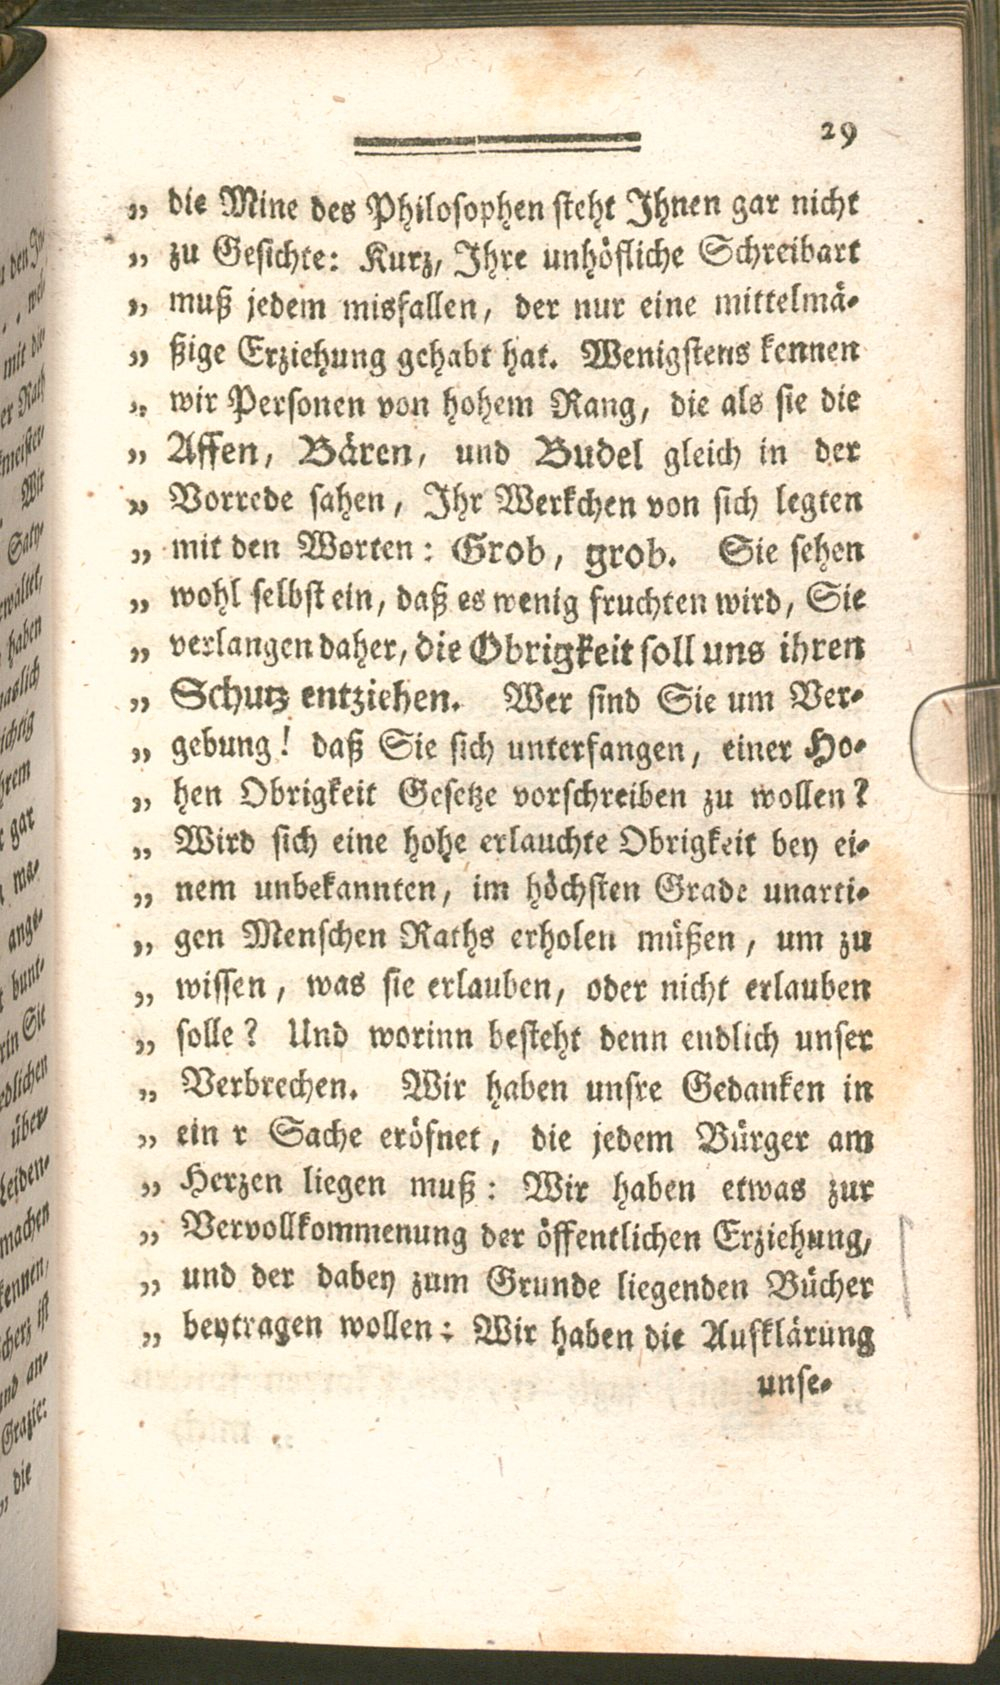 29
„ die Mine des Philosophen steht Ihnen gar nicht
„ zu Gesichte: Kurz, Ihre unhöfliche Schreibart
„ muß jedem misfallen, der nur eine mittelmä-
„ ßige Erziehung gehabt hat. Wenigstens kennen
„ wir Personen von hohem Rang, die als sie die
„ Affen, Bären, und Budel gleich in der
„ Vorrede sahen, Ihr Werkchen von sich legten
„ mit den Worten: Grob, grob. Sie sehen
„ wohl selbst ein, daß es wenig fruchten wird, Sie
„ verlangen daher, die Obrigkeit soll uns ihren
„ Schutz entziehen. Wer sind Sie um Ver-
„ gebung! daß Sie sich unterfangen, einer Ho-
„ hen Obrigkeit Gesetze vorschreiben zu wollen?
„ Wird sich eine hohe erlauchte Obrigkeit bey ei-
„ nem unbekannten, im höchsten Grade unarti-
„ gen Menschen Raths erholen müßen, um zu
„ wissen, was sie erlauben, oder nicht erlauben
„ solle? Und worinn besteht denn endlich unser
„ Verbrechen. Wir haben unsre Gedanken in
„ ein r Sache eröfnet, die jedem Bürger am
„ Herzen liegen muß: Wir haben etwas zur
„ Vervollkommenung der öffentlichen Erziehung,
„ und der dabey zum Grunde liegenden Bücher
„ beytragen wollen: Wir haben die Aufklärung
unse-